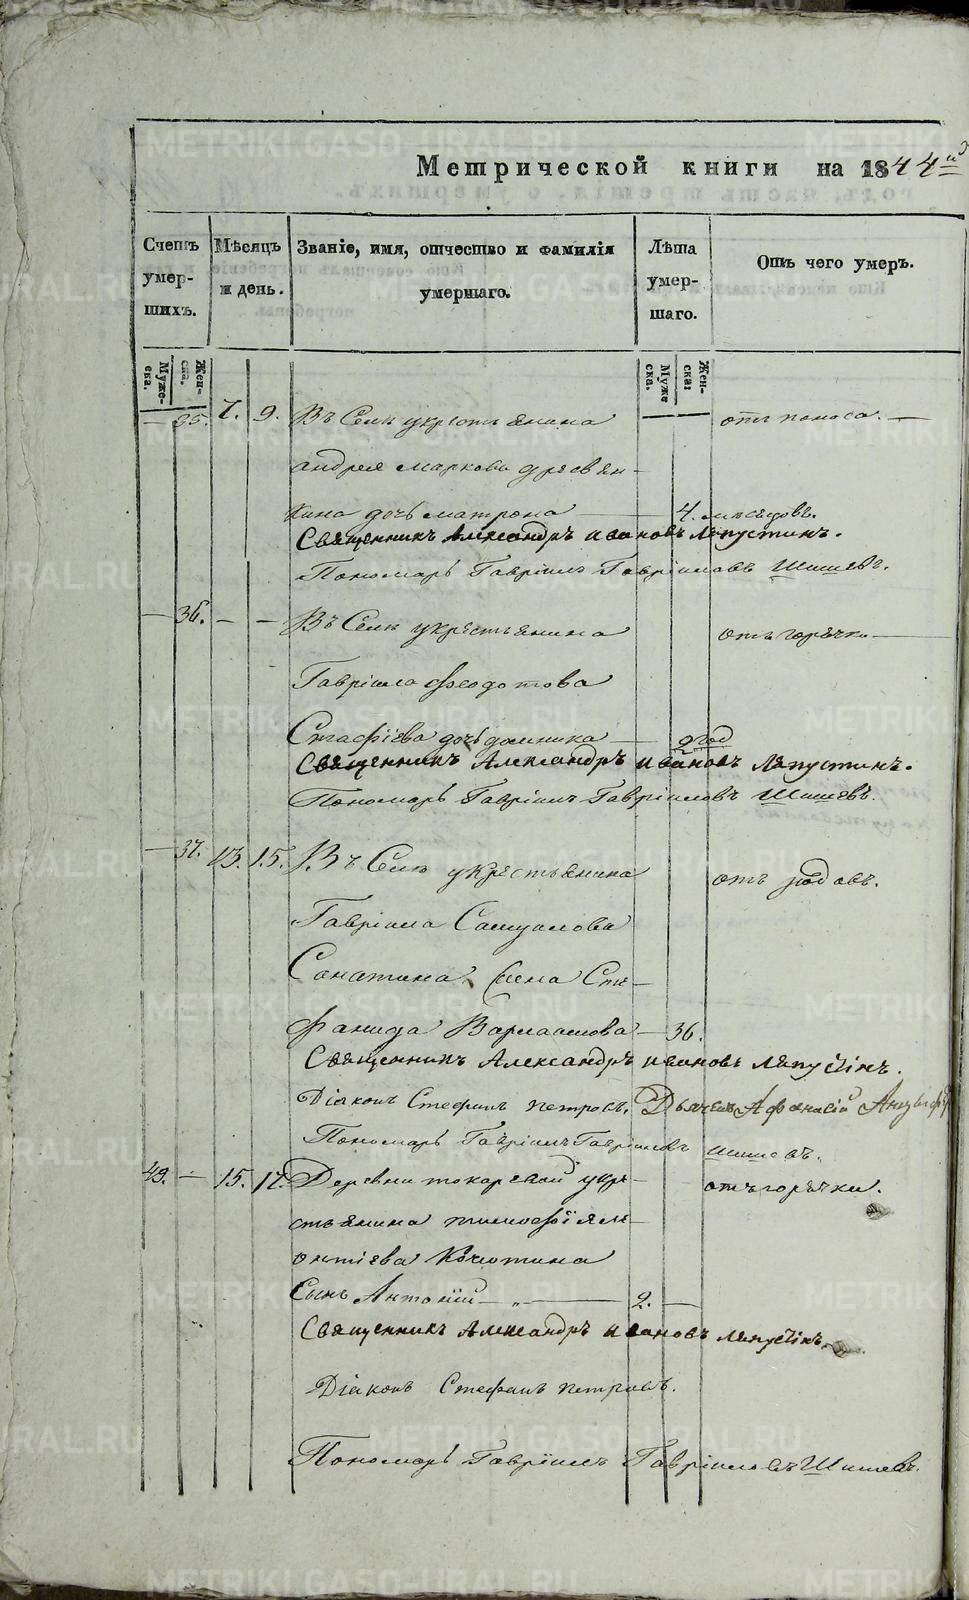 Метрической книги на 1844й
Счетъ умершихъ.
Мѣсяцъ и день.
Званіе, имя, отчество и фамилія умершаго.
Лѣта умершаго.
Отъ чего умеръ.
Муже-ска.
Жен-ска.
Муже ска.
Жен-ска:
— 35. 7. 9. Въ Селѣ укрестьянина отъ поноса. —
андрея маркова
кина дочь матрона — 4. мѣсяцовъ.
Священникъ Александръ ивановъ Ляпустинъ.
Пономарь Гавріилъ Гавріиловъ Шишевъ.
— 36. — — Въ Селѣ укрестьянина отъ горячки —
Гавріила Феодотова
дочь домника — 2 год
Священникъ Александръ ивановъ Ляпустинъ.
Пономарь Гавріилъ Гавріиловъ Шишевъ.
— 37. 13. 15. Въ Селѣ укрестьянина отъ родовъ.
Гавріила Самуилова
Сте-
фанида Варлаамова — 36.
Священникъ Александръ ивановъ Ляпустінъ.
Діаконъ Стефанъ петровъ. Дьячекъ Афанасій
Пономарь Гавріилъ Гавріиловъ шишевъ.
49. — 15. 17. Деревни токаревой укре- отъ горячки.
стьянина тимофея ле-
онтіева
Сынъ Антоній — „ — 2. —
Священникъ Александръ ивановъ ляпустінъ.
Діаконъ Стефанъ петровъ.
Пономарь Гавріилъ Гавріиловъ Шишевъ.
METRIKI.GASO-URAL.RU